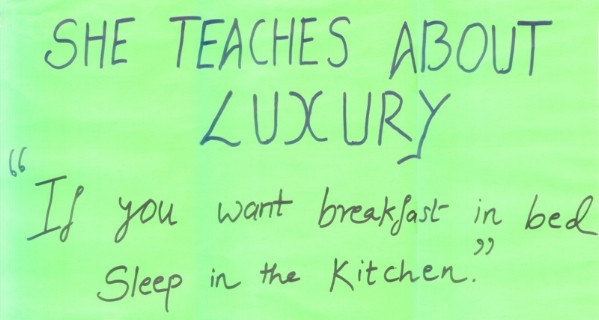 SHE TEACHES ABOUT
LUXURY
“If you want breakfast in bed
Sleep in the Kitchen.”